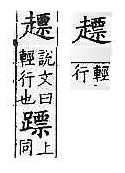 𧽤
輕
行
𧽤
說文曰
輕行也
𨄏
上
同